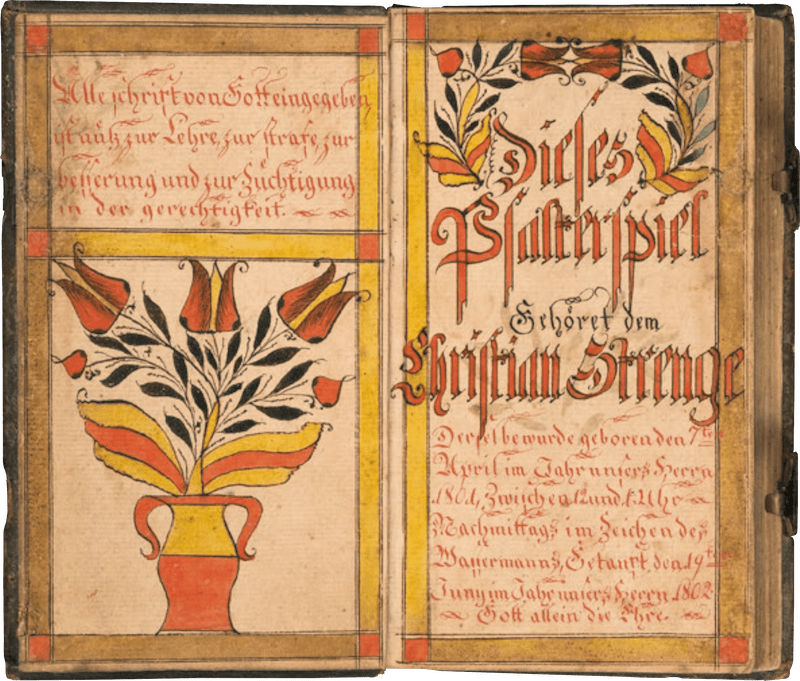 Alle schrift von Gott eingegeben
ist nütz zur Lehre, zur strafe, zur
besserung und zur Züchtigung
in der gerechtigkeit.
Dieses
Psalterspiel
Gehöret dem
Christian Strenge
Derselbe wurde geboren den 7ten
April im Jahr unsers Herrn
1801, Zwischen 12 und 1 Uhr
Nachmittags im Zeichen des
Wassermanns, Getauft, den 19ten
Juny im Jahr unsers Herrn 1802
Gott allein die Ehre.